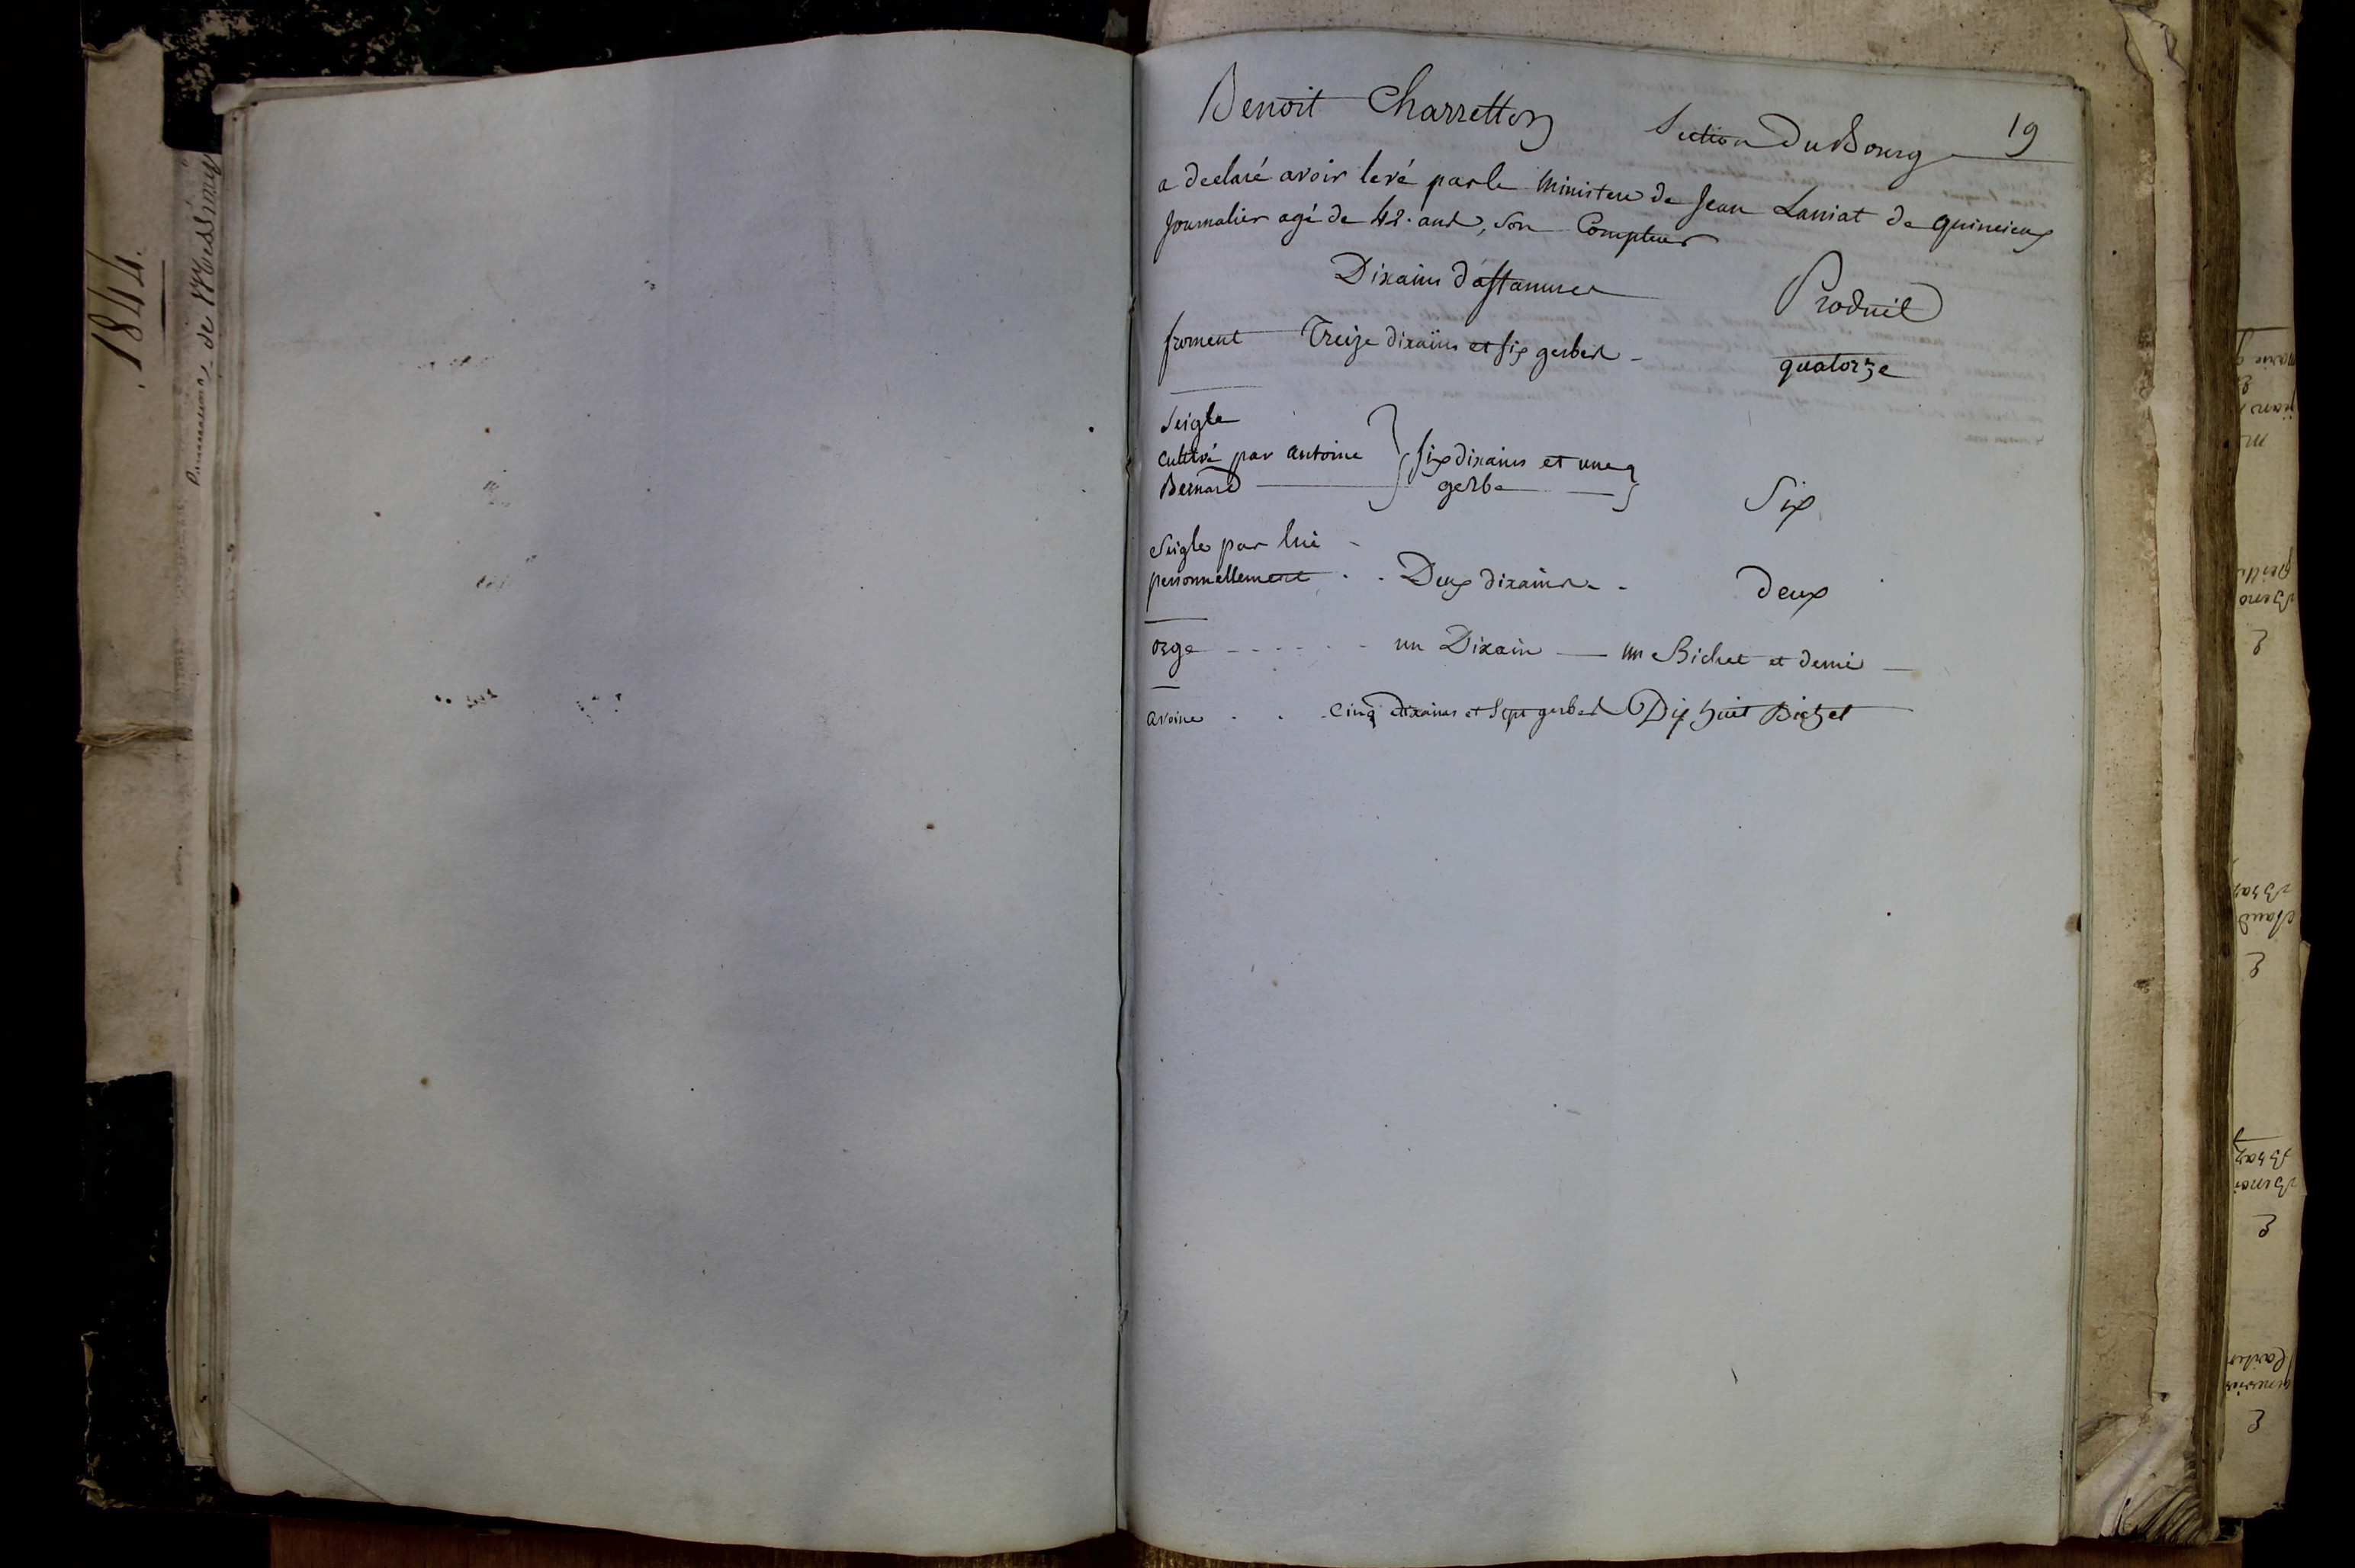 1844.
de Messimy
Benoit Charretton Section Du Bourg 19
a declaré avoir levé par le ministere de Jean Laniat de quincieux
Journalier agé de 42. ans, son Compteur
Dixains d'affanures Produit
froment Treize dixains et six gerbes - quatorze
Seigle
cultivé par antoine } six dixains et une
Bernard gerbe Six
Seigle par lui -
personnellement . . Deux dixains - deux
orge - - - - - - un Dixain — un Bichet et demi —
avoine . . . Cinq dixains et sept gerbes Dix huit Bichet